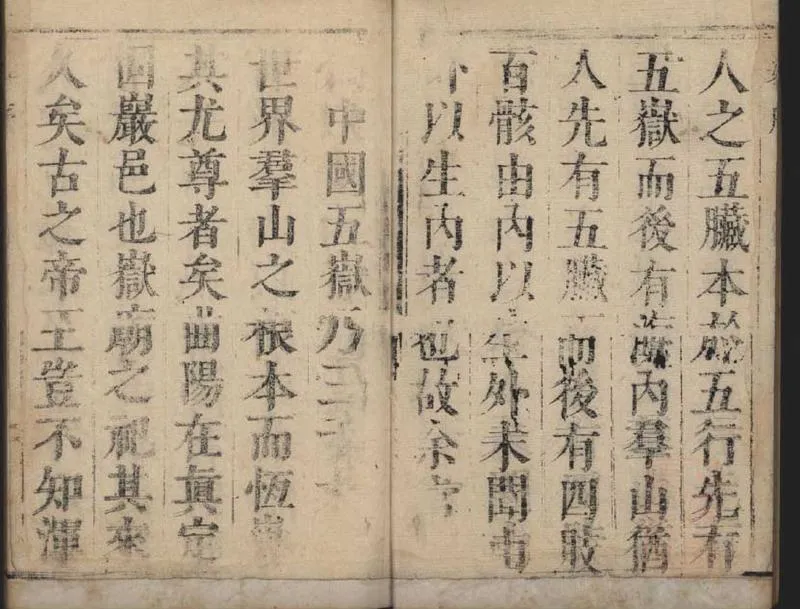 人之五臟本於五行先有
五嶽而後有海內羣山猶
人先有五臟而後有四肢
百骸由內以生外未聞由
外以生內者也故余
中國五嶽乃三千
世界羣山之根本而恆
其尤尊者矣曲陽在真定
巖邑也嶽廟之祀其來
久矣古之帝王豈不知渾